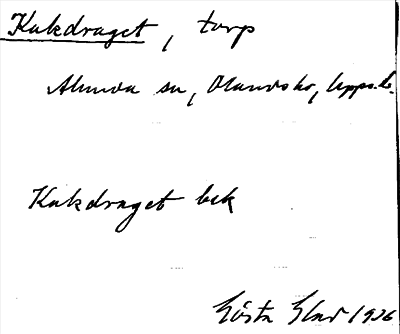 Kakdraget, torp
Alunda sn, Olands hd, Upps. l.
Kakdraget bek
Gösta Elad 1936